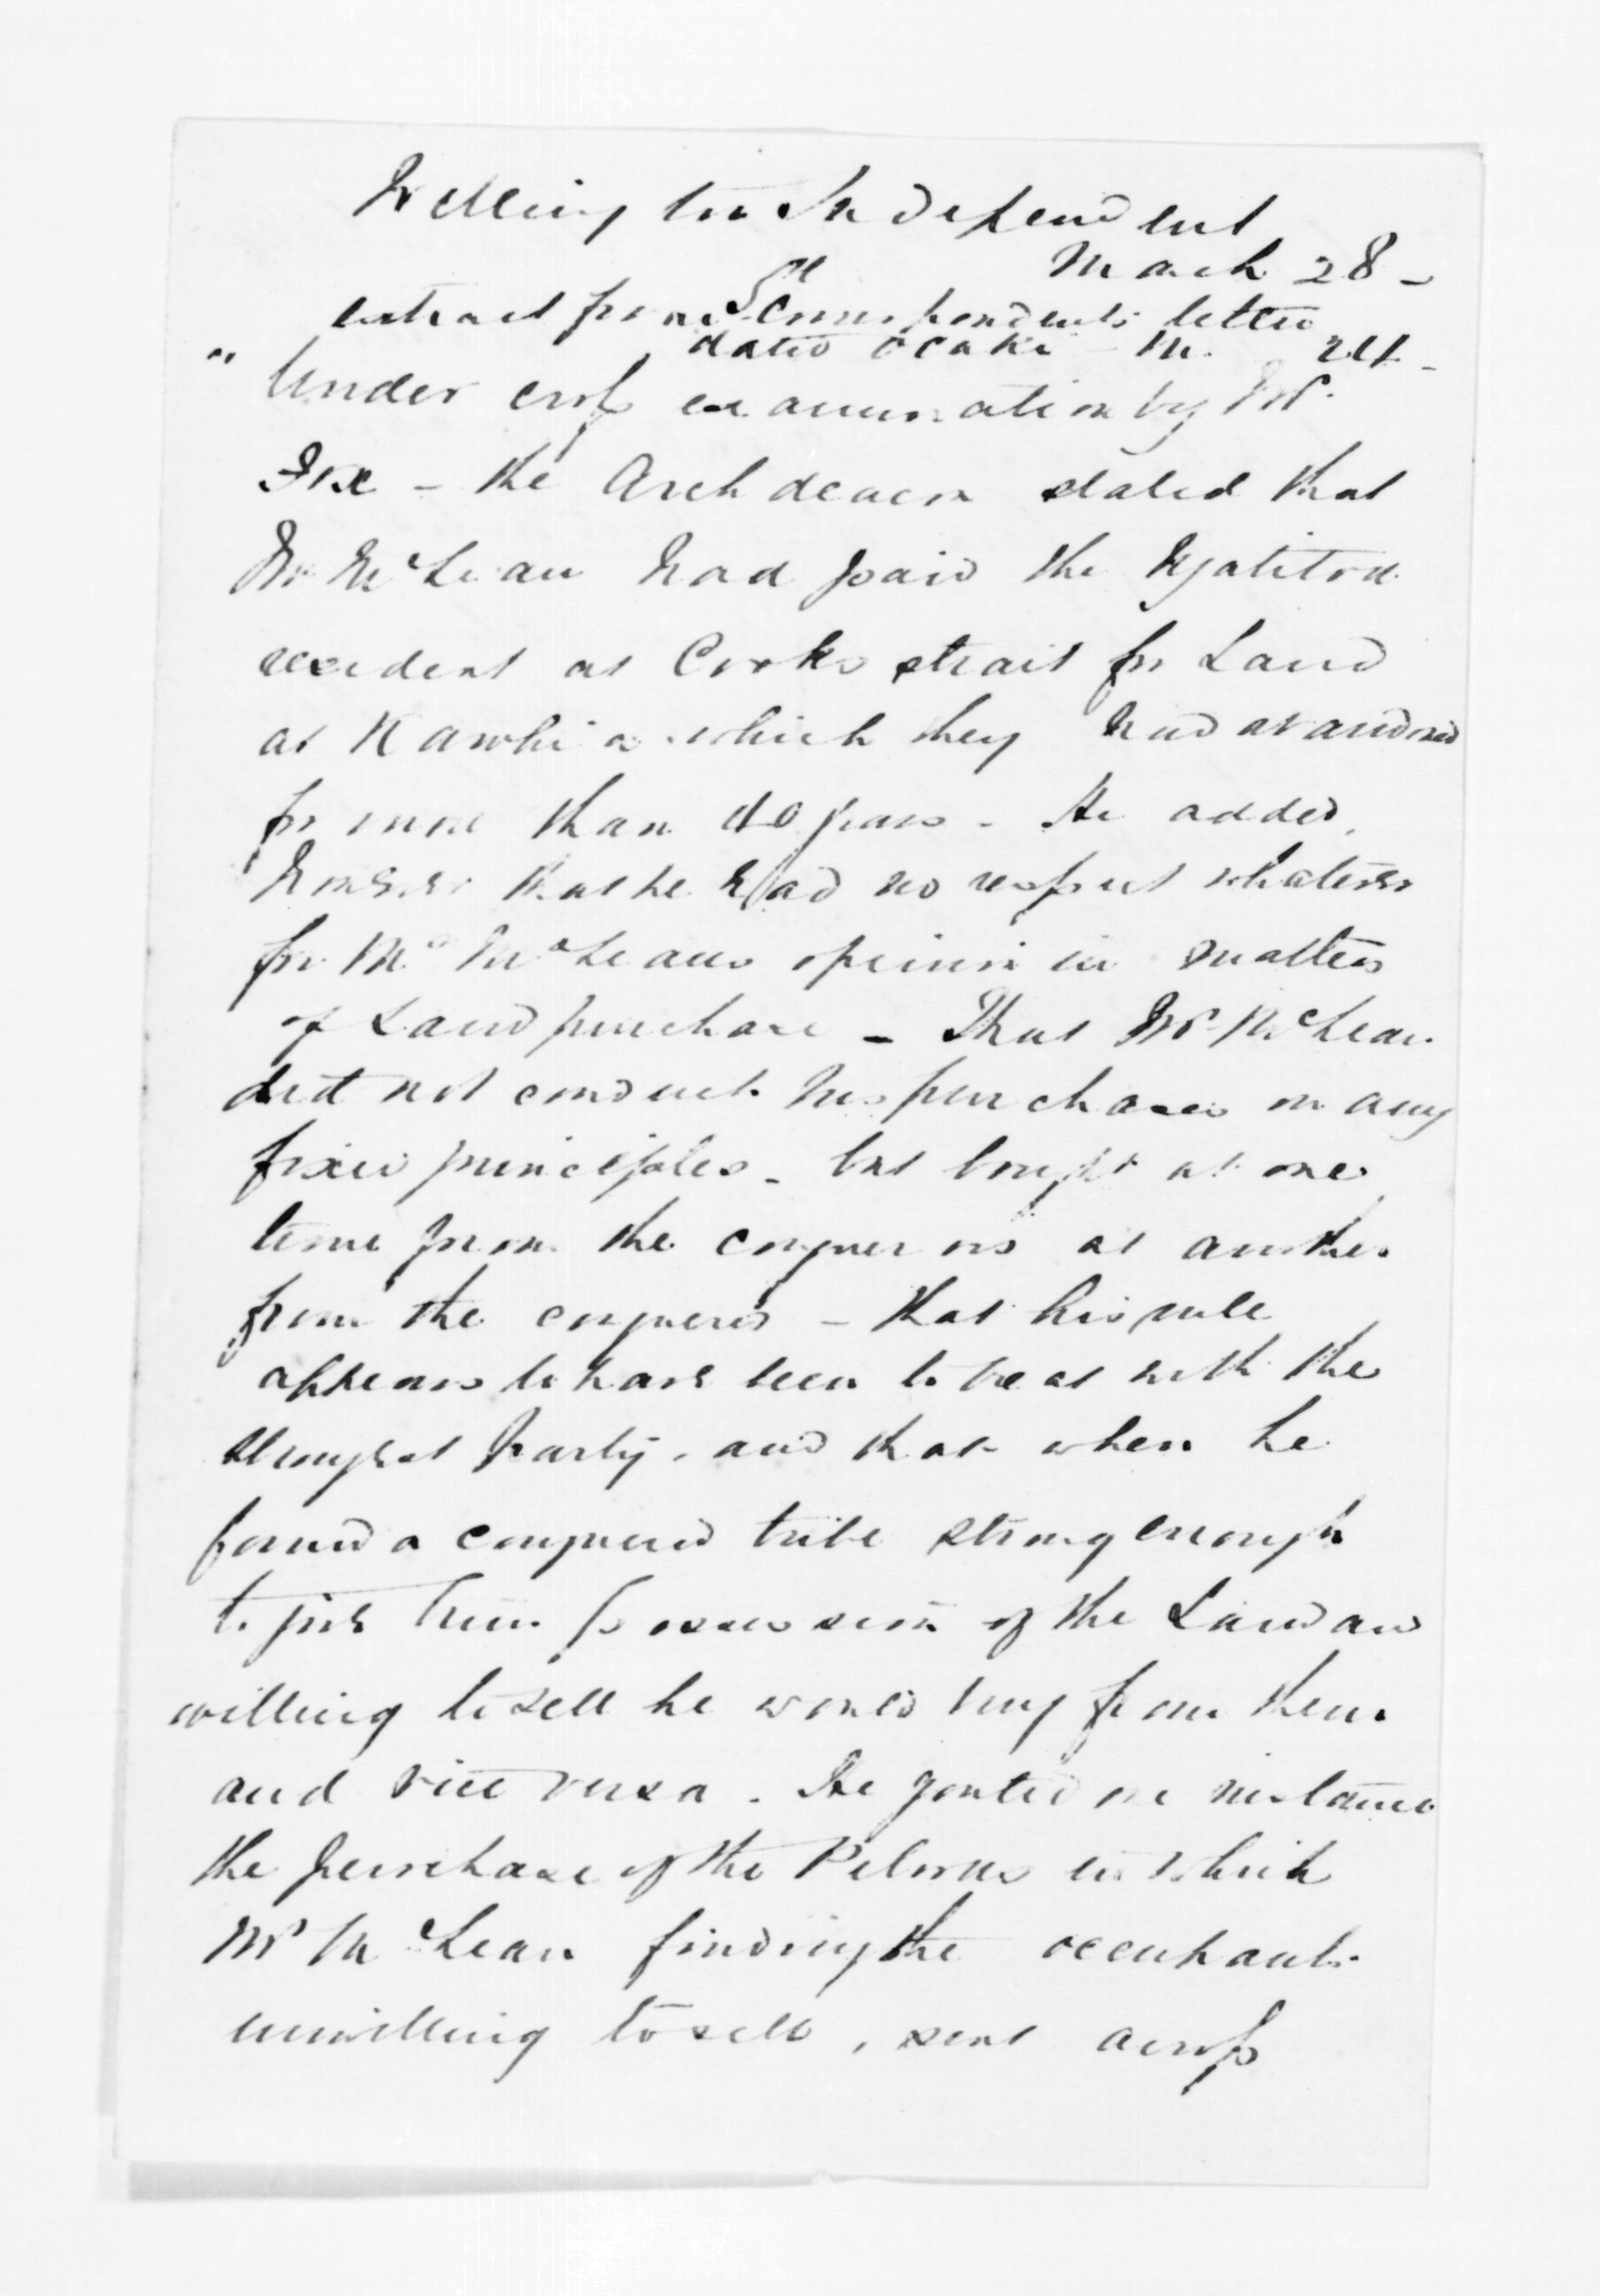 Wellington Independent
March 28 -
extract from Correspondents letter
dated Otaki - M. 24 -
" Under cross examination by Mr.
Fox - the Archdeacon stated that
Mr McLean had paid the Ngatitoa
resident at Cooks strait for Land
at Kawhia which they had abandoned
for more than 40 years - He added,
however that he had no respect whatever
for Mr McLeans opinion in matters
of Land purchase - That Mr McLean
did not conduct his purchases on any
fixed principles - but bought at one
time from the conquerors at another
from the conquered - that his rule
appears to have been to treat with the
strongest party, and that when he
found a conquered tribe strong enough
to give him possession of the Land and
willing to sell he would buy from them
and vice versa. He quoted one instance
the purchase of the Pelorus in which
Mr McLean finding the occupants
unwilling to sell, sent across